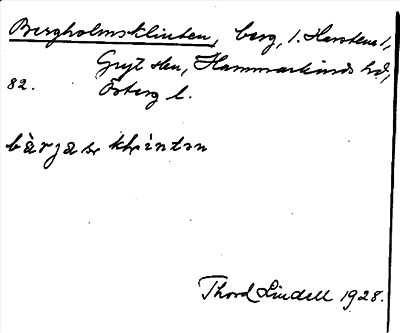 Bergholmsklinten, berg, l. Harstena 1,
Gryt sn, Hammarkinds hd,
82. Österg l.
bæ̀rjas klintn
Thord Lindell 1928.